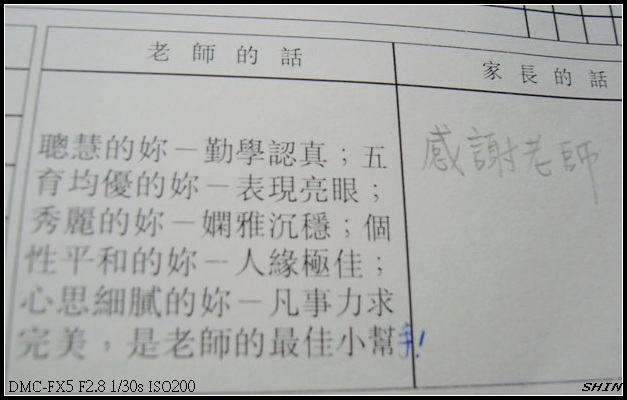 老師的話
聰慧的妳－勤學認真；五
育均優的妳－表現亮眼；
秀麗的妳－嫻雅沉穩；個
性平和的妳－人緣極佳；
心思細膩的妳－凡事力求
完美，是老師的最佳小幫手！
家長的話
感謝老師
DMC-FX5 F2.8 1/30s ISO200
SHIN